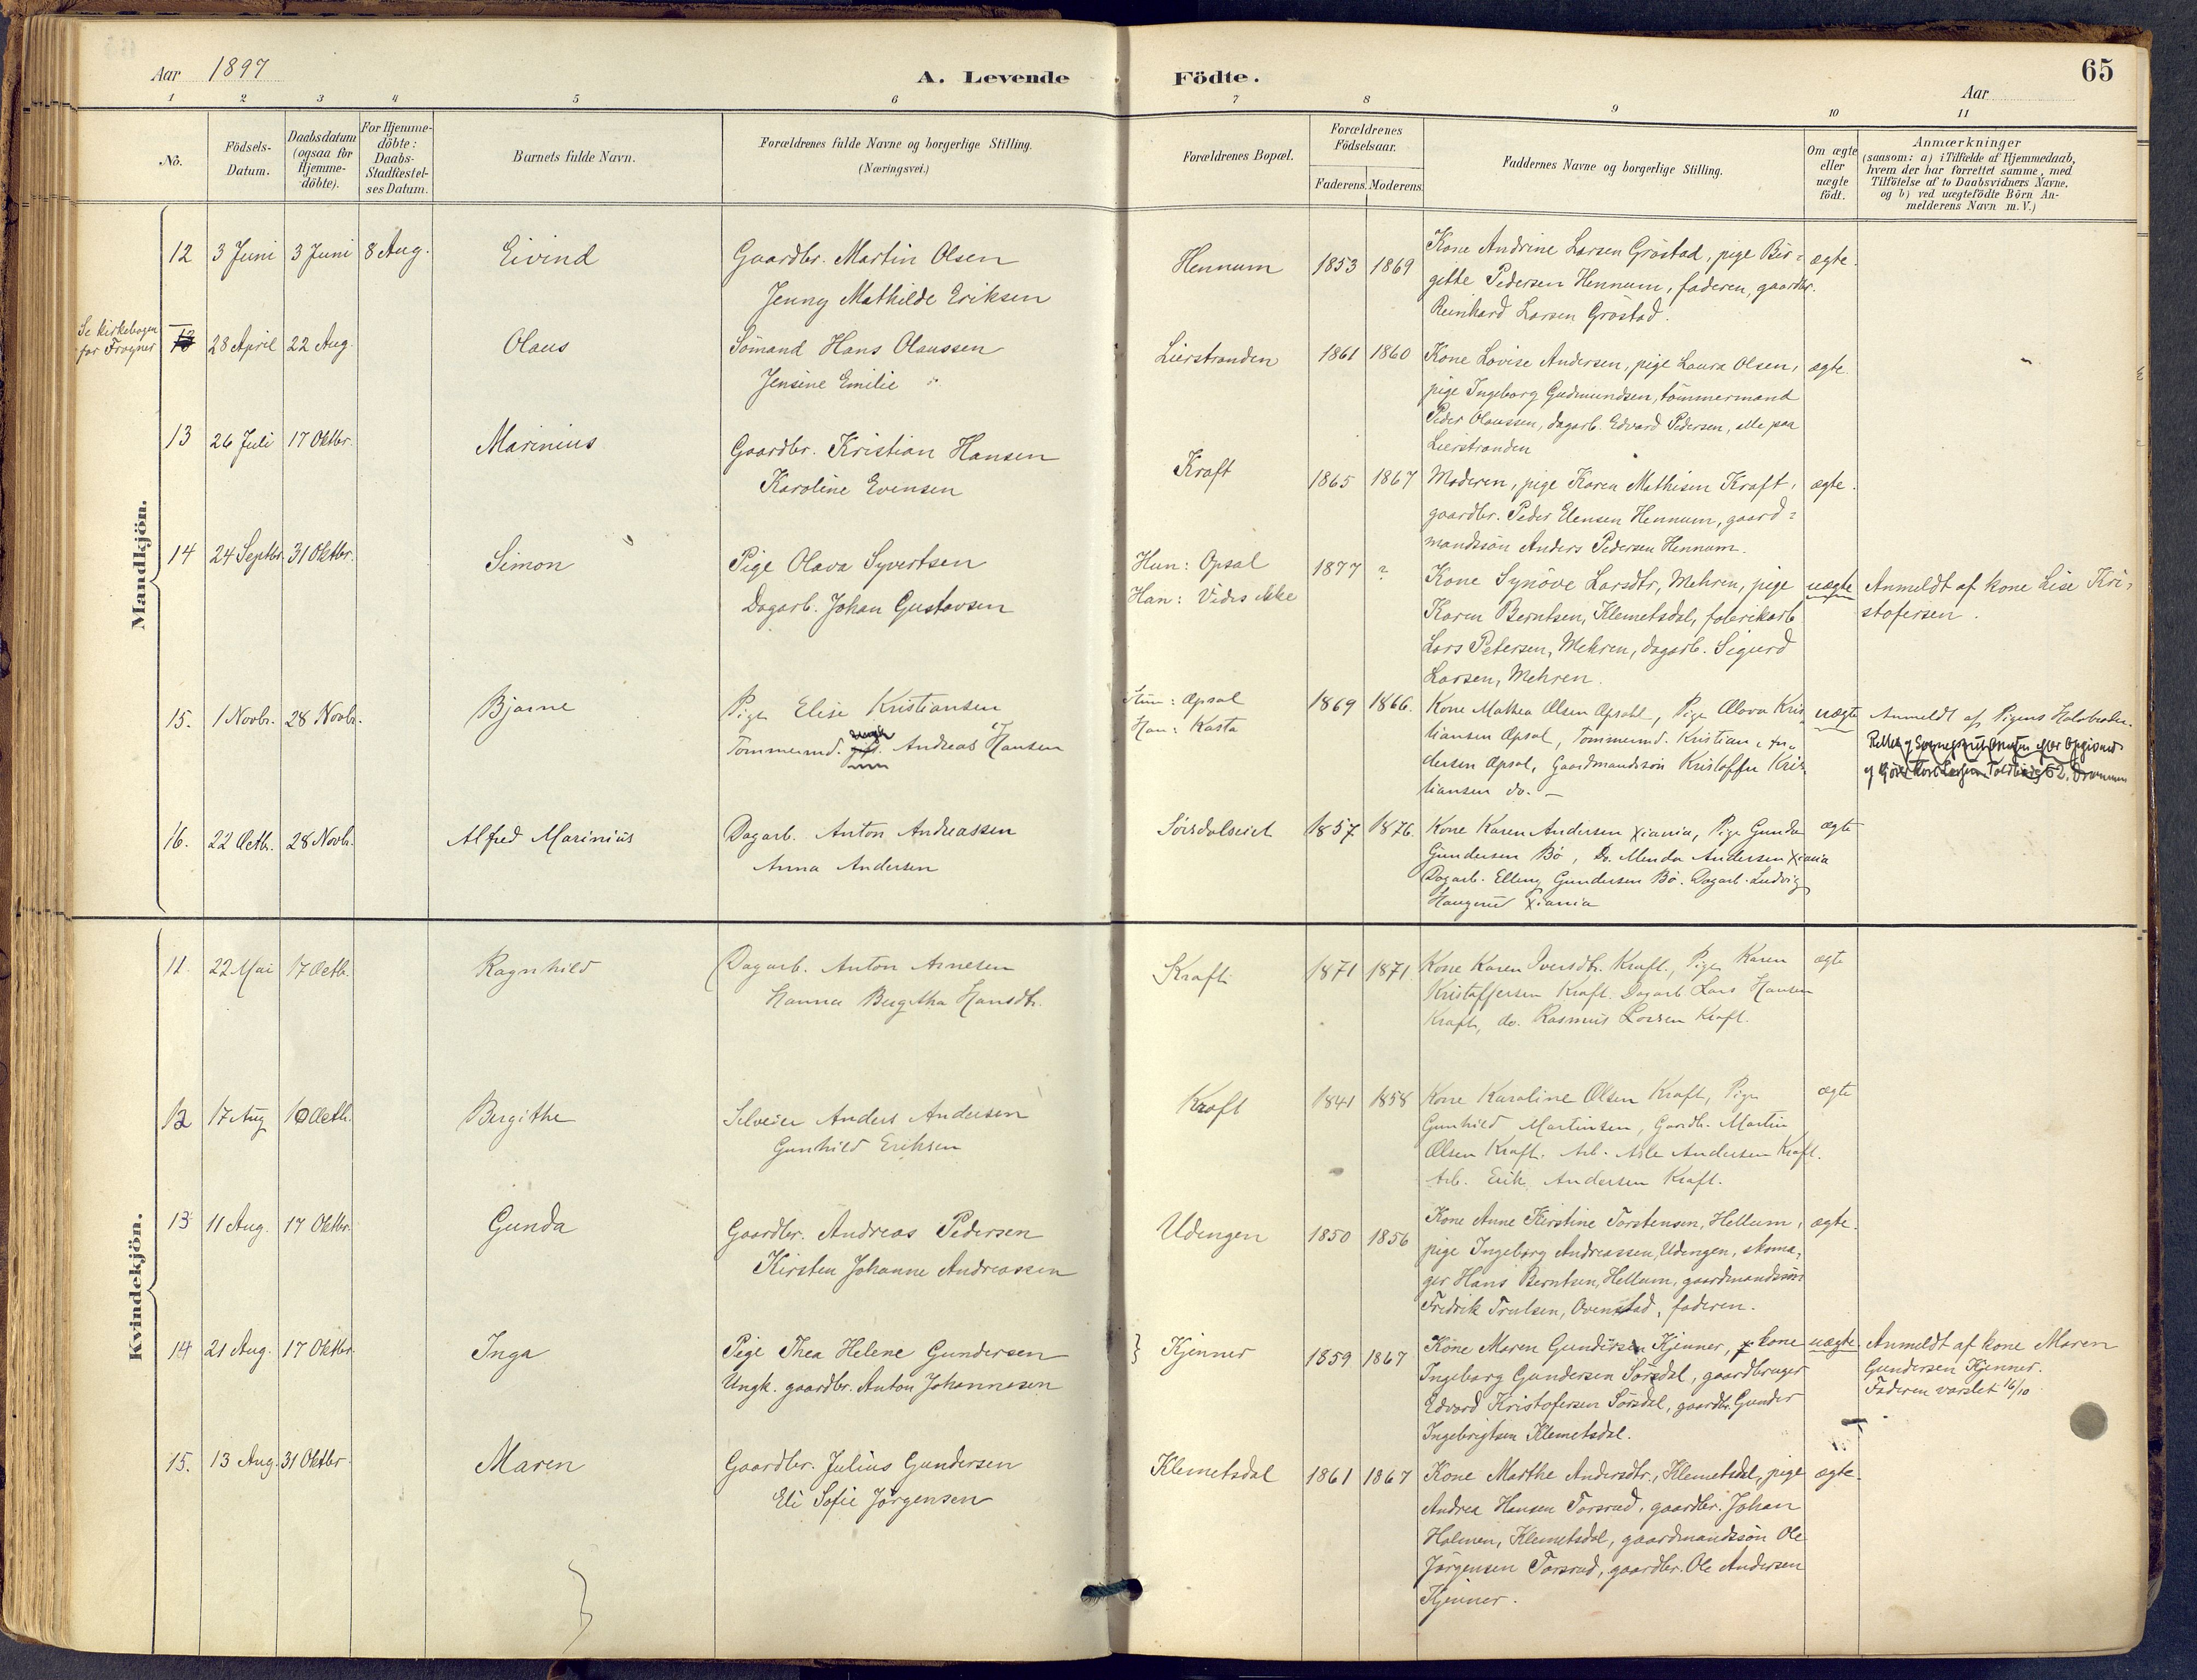 Aar 1897
A. Levende
Födte.
65
Aar
1 2 3 4 5 6 7 8 9 10 11
No.
Födsels-
Datum.
Daabsdatum
(ogsaa for
Hjemme-
döbte).
For Hjemme-
döbte:
Daabs-
Stadfæstel-
ses Datum.
Barnets fulde Navn.
Forældrenes fulde Navne og borgerlige Stilling.
(Næringsvei.)
Forældrenes Bopæl.
Forældrenes
Födselsaar.
Faderens. Moderens.
Faddernes Navne og borgerlige Stilling.
Om ægte
eller
uægte
födt.
Anmærkninger
(saasom: a) i Tilfælde af Hjemmedaab,
hvem der har forrettet samme, med
Tilföielse af to Daabsvidners Navne.
og b) ved uægtefödte Börn An-
melderens Navn m. V.)
Mandkjön.
12 3 Juni 3 Juni 8 Aug. Eivind
Gaardbr. Martin Olsen
Jenny Mathilde Eriksen
Hennum 1853 1869
Kone Andrine Larsen Gröstad, pige Bir-
gitte Pedersen Hennum, faderen, gaardbr.
Reinhard Larsen Gröstad.
ægte.
Se kirkebogen
for Frogner
13 28 April 22 Aug. Olaus
Sömand Hans Olaussen
Jensine Emilie
Lierstranden 1861 1860
Kone Lovise Andersen, pige Laura Olsen,
pige Ingeborg Gudmundsen, tömmermand
Peder Olaussen, dagarb. Edvard Pedersen, alle paa
Lierstranden
ægte.
13 26 Juli 17 Oktbr. Marinius
Gaardbr. Kristian Hansen
Karoline Evensen
Kraft 1865 1867
Moderen, pige Karen Mathisen Kraft,
gaardbr. Peder Elensen Hennum, gaard-
mandssön Anders Pedersen Hennum.
ægte.
14 24 Septbr. 31 Oktbr. Simon
Pige Olava Syvertsen
Dagarb. Johan Gustavsen
Hun: Opsal
Han: Vides ikke
1877 ?
Kone Synöve Larsdtr, Mehren, pige
Karen Berntsen, Klemetsdal, fabrikarb
Lars Petersen, Mehren, dagarb. Sigurd
Larsen, Mehren.
uægte
Anmeldt af kone Lise Kri-
stofersen.
15. 1 Novbr. 28 Novbr. Bjarne
Pige Elise Kristiansen
Tömmermd. Andreas Hansen
Hun: Opsal
Han: Kasta
1869 1866.
Kone Mathea Olsen Opsahl, Pige Olava Kris
tiansen Opsal, Tömmermd. Kristian An-
dersen Opsal, Gaardmandssön Kristoffer Kris-
tiansen do. –
uægte
Anmeldt af Pigens Halvbroder.
16. 22 Octb. 28 Novb. Alfred Marinius
Dagarb. Anton Andreassen
Anna Andersen
Sörsdalseiet 1857 1876.
Kone Karen Andersen Xiania, Pige Gunda
Gundersen Bö, Do. Menda Andersen Xiania
Dagarb. Elling Gundersen Bö. Dagarb. Ludvig
Haugerud Xiania
ægte
Kvindekjön.
11. 22 Mai 17 Octb. Ragnhild
Dagarb. Anton Arnesen
Hanna Bergitha Hansdtr.
Kraft 1871 1871
Kone Karen Iversdtr. Kraft, Pige Karen
Kristoffersen Kraft. Dagarb Lars Hansen
Kraft, do. Rasmus Larsen Kraft.
ægte
12 17 Aug 10 Octb. Bergithe
Selveier Anders Andersen
Gunhild Eriksen
Kraft 1841 1858
Kone Karoline Olsen Kraft, Pige
Gunhild Martinsen, Gaardb. Martin
Olsen Kraft. Arb. Asle Andersen Kraft.
Arb. Erik Andersen Kraft.
ægte
13 11 Aug. 17 Oktbr. Gunda
Gaardbr. Andreas Pedersen
Kirsten Johanne Andreassen
Udengen 1850 1856
Kone Anne Kirstine Torstensen, Hellum,
pige Ingeborg Andreassen, Udengen, skoma-
ger Hans Berntsen, Hellum, gaardmandssön
Fredrik Trulsen, Ovenstad, faderen.
ægte.
14 21 Aug. 17 Oktbr. Inga
Pige Thea Helene Gundersen
Ungk. gaardbr. Anton Johannesen
} Kjenner 1859 1867
Kone Maren Gundersen Kjenner, kone
Ingeborg Gundersen Sörsdal, gaardbruger
Edvard Kristofersen Sörsdal, gaardbr. Gunder
Ingebrigtsen Klemetsdal.
uægte.
Anmeldt af kone Maren
Gundersen Kjenner.
Faderen varslet 16/10
15. 13 Aug. 31 Oktbr. Maren
Gaardbr. Julius Gundersen
Eli Sofie Jörgensen
Klemetsdal 1861 1867
Kone Marthe Andersdtr., Klemetsdal, pige
Andrea Hansen Torsrud, gaardbr. Johan
Holmen, Klemetsdal, gaardmandssön Ole
Jörgensen Torsrud, gaardbr. Ole Andersen
Kjenner.
ægte.